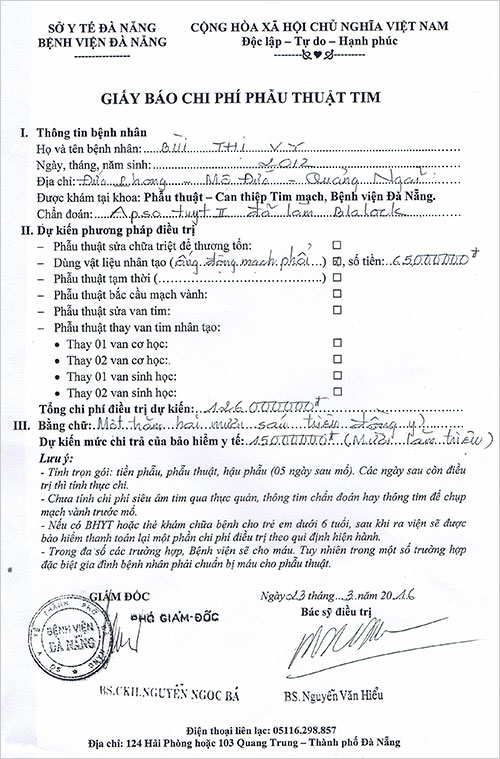 SỞ Y TẾ ĐÀ NẴNG
BỆNH VIỆN ĐÀ NẴNG
CỘNG HÒA XÃ HỘI CHỦ NGHĨA VIỆT NAM
Độc lập – Tự do – Hạnh phúc
GIẤY BÁO CHI PHÍ PHẪU THUẬT TIM
I. Thông tin bệnh nhân
Họ và tên bệnh nhân: BÙI THI VY
Ngày, tháng, năm sinh: 2012
Địa chỉ: Đức Phong – Mộ Đức – Quảng Ngãi
Được khám tại khoa: Phẫu thuật – Can thiệp Tim mạch, Bệnh viện Đà Nẵng.
Chẩn đoán: Apso tuyt II đã làm Blalock
II. Dự kiến phương pháp điều trị
– Phẫu thuật sửa chữa triệt để thương tổn: ☐
– Dùng vật liệu nhân tạo (ống động mạch phổi...) ☑, số tiền: 65000000đ
– Phẫu thuật tạm thời (...) ☐
– Phẫu thuật bắc cầu mạch vành: ☐
– Phẫu thuật sửa van tim: ☐
– Phẫu thuật thay van tim nhân tạo:
• Thay 01 van cơ học: ☐
• Thay 02 van cơ học: ☐
• Thay 01 van sinh học: ☐
• Thay 02 van sinh học: ☐
Tổng chi phí điều trị dự kiến: 126000000đ
III. Bằng chữ: Một trăm hai mươi sáu triệu đồng y
Dự kiến mức chi trả của bảo hiểm y tế: 15000000đ (Mười lăm triệu)
Lưu ý:
- Tính trọn gói: tiền phẫu, phẫu thuật, hậu phẫu (05 ngày sau mổ). Các ngày sau còn điều
trị thì tính thực chi.
- Chưa tính chi phí siêu âm tim qua thực quản, thông tim chẩn đoán hay thông tim để chụp
mạch vành trước mổ.
- Nếu có BHYT hoặc thẻ khám chữa bệnh cho trẻ em dưới 6 tuổi, sau khi ra viện sẽ được
bảo hiểm thanh toán lại một phần chi phí điều trị theo qui định hiện hành.
- Trong đa số các trường hợp, Bệnh viện sẽ cho máu. Tuy nhiên trong một số trường hợp
đặc biệt gia đình bệnh nhân phải chuẩn bị máu cho phẫu thuật.
GIÁM ĐỐC
Ngày 23 tháng 3 năm 2016
PHÓ GIÁM ĐỐC
Bác sỹ điều trị
BỆNH VIỆN
ĐÀ NẴNG
BS.CKII.NGUYỄN NGỌC BÁ
BS. Nguyễn Văn Hiếu
Điện thoại liên lạc: 05116.298.857
Địa chỉ: 124 Hải Phòng hoặc 103 Quang Trung – Thành phố Đà Nẵng